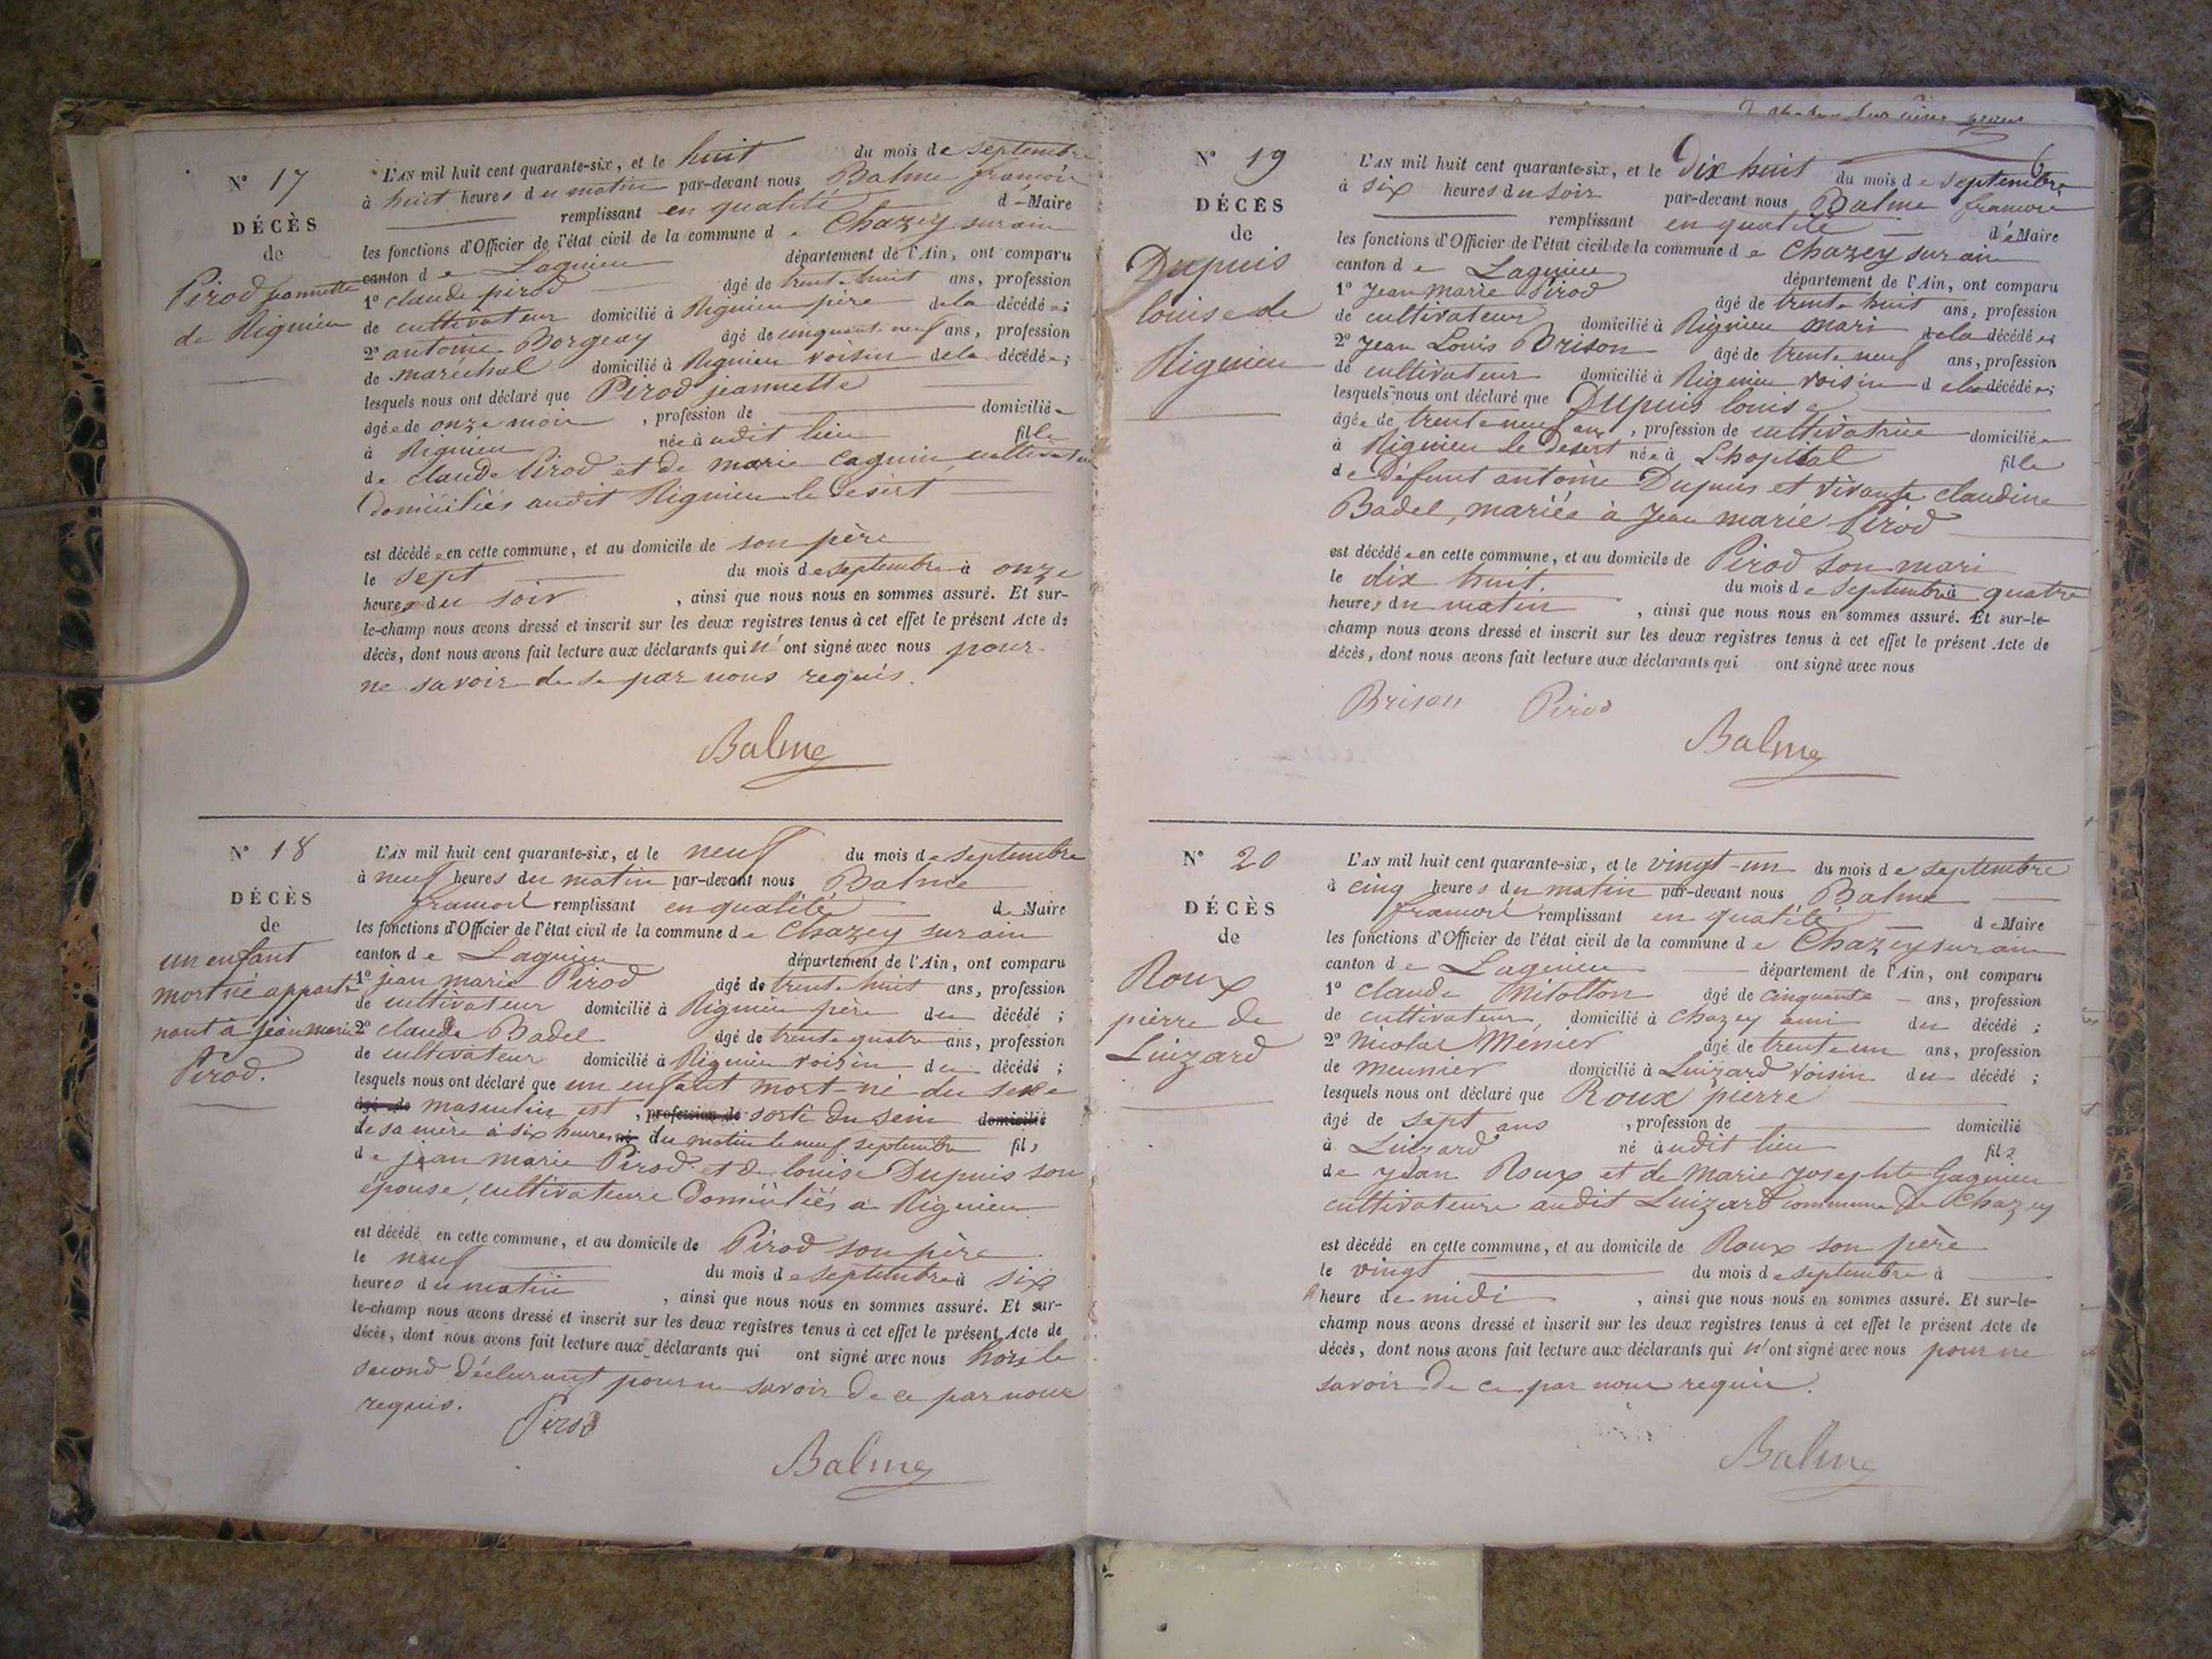 N° 17
DÉCÈS
de
Pirod jeannette
de Rignieu
L'AN mil huit cent quarante-six, et le huit du mois de septembre
à huit heures du matin par-devant nous Balme framoré
remplissant en qualité de Maire
les fonctions d'Officier de l'état civil de la commune de Chazey sur ain
canton de Lagnieu département de l'Ain, ont comparu
1° claude pirod âgé de trente huit ans, profession
de cultivateur domicilié à Rignieu père de la décédée;
2° antoine Borgeay âgé de cinquante neuf ans, profession
de marechal domicilié à Rignieu voisin de la décédée;
lesquels nous ont déclaré que Pirod jeannette
âgée de onze mois, profession de domiciliée
à Rignieu née à udit lieu fille
de claude Pirod et de marie caguin cultivateurs
Domiciliés audit Rignieu le desert
est décédée en cette commune, et au domicile de son père
le sept du mois de septembre à onze
heures du soir, ainsi que nous nous en sommes assuré. Et sur-
le-champ nous avons dressé et inscrit sur les deux registres tenus à cet effet le présent Acte de
décès, dont nous avons fait lecture aux déclarants qui n'ont signé avec nous pour
ne savoir de se par nous requis.
Balme
N° 18
DÉCÈS
de
un enfant
mort né apparte
nant à jean marie
Pirod.
L'AN mil huit cent quarante-six, et le neuf du mois de septembre
à neuf heures du matin par-devant nous Balme
framoré remplissant en qualité de Maire
les fonctions d'Officier de l'état civil de la commune de Chazey sur ain
canton de Lagnieu département de l'Ain, ont comparu
1° jean marie Pirod âgé de trente huit ans, profession
de cultivateur domicilié à Rignieu père du décédé;
2° claude Badel âgé de trente quatre ans, profession
de cultivateur domicilié à Rignieu voisin du décédé;
lesquels nous ont déclaré que un enfant mort-né du sexe
âgé de masculin est, profession de sorti du sein domicilié
de sa mère à six heures né du matin le neuf septembre fils
de jean marie Pirod et de louise Dupuis son
épouse, cultivateurs Domiciliés à Rignieu
est décédé en cette commune, et au domicile de Pirod son père
le neuf du mois de septembre à six
heures du matin, ainsi que nous nous en sommes assuré. Et sur-
le-champ nous avons dressé et inscrit sur les deux registres tenus à cet effet le présent Acte de
décès, dont nous avons fait lecture aux déclarants qui ont signé avec nous hors le
second déclarant pour ne savoir de ce par nous
requis.
Pirod
Balme
6
N° 19
DÉCÈS
de
Dupuis
louise de
Rignieu
L'AN mil huit cent quarante-six, et le Dix huit du mois de septembre
à six heures du soir par-devant nous Balme framoré
remplissant en qualité de Maire
les fonctions d'Officier de l'état civil de la commune de Chazey sur ain
canton de Lagnieu département de l'Ain, ont comparu
1° Jean marie Pirod âgé de trente huit ans, profession
de cultivateur domicilié à Rignieu mari de la décédée;
2° Jean Louis Brison âgé de trente neuf ans, profession
de cultivateur domicilié à Rignieu voisin de la décédée;
lesquels nous ont déclaré que Dupuis louise
âgée de trente neuf ans, profession de cultivatrice domiciliée
à Rignieu le desert née à Lhopital fille
de défunt antoine Dupuis et vivante claudine
Badel, mariée à Jean marie Pirod
est décédée en cette commune, et au domicile de Pirod son mari
le dix huit du mois de septembre à quatre
heures du matin, ainsi que nous nous en sommes assuré. Et sur-le-
champ nous avons dressé et inscrit sur les deux registres tenus à cet effet le présent Acte de
décès, dont nous avons fait lecture aux déclarants qui ont signé avec nous
Brison Pirod
Balme
N° 20
DÉCÈS
de
Roux
pierre de
Luizard
L'AN mil huit cent quarante-six, et le vingt-un du mois de septembre
à cinq heures du matin par-devant nous Balme
framoré remplissant en qualité de Maire
les fonctions d'Officier de l'état civil de la commune de Chazey sur ain
canton de Lagnieu département de l'Ain, ont comparu
1° claude Mitolton âgé de cinquante ans, profession
de cultivateur, domicilié à chazey ami du décédé;
2° Nicolas Menier âgé de trente un ans, profession
de meunier domicilié à Luizard voisin du décédé;
lesquels nous ont déclaré que Roux pierre
âgé de sept ans, profession de domicilié
à Luizard né audit lieu fils
de jean Roux et de Marie josephte Gagnieu
cultivateurs audit Luizard commune de Chazey
est décédé en cette commune, et au domicile de Roux son père
le vingt du mois de septembre à
heure de midi, ainsi que nous nous en sommes assuré. Et sur-le-
champ nous avons dressé et inscrit sur les deux registres tenus à cet effet le présent Acte de
décès, dont nous avons fait lecture aux déclarants qui n'ont signé avec nous pour ne
savoir de ce par nous requis.
Balme